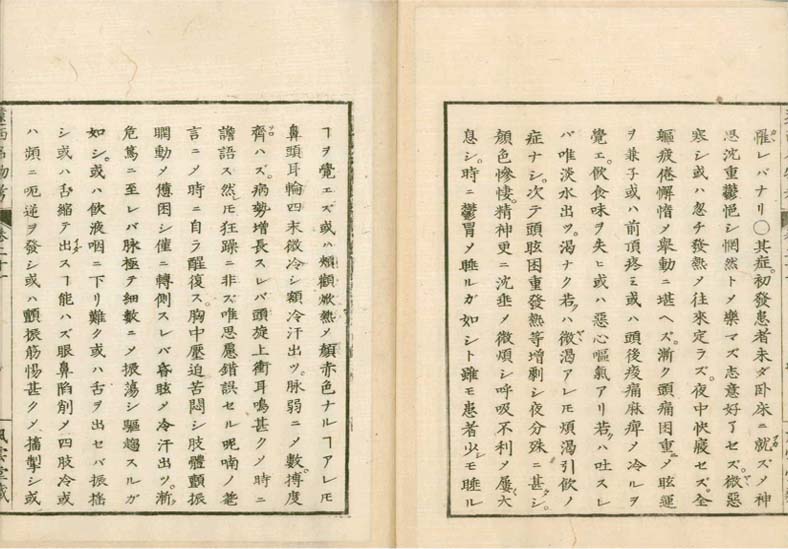 罹レバナリ〇其症初發患者未ダ臥床ニ就ズメ神
思沈重鬱悒シ惘然トメ樂マズ志意好了セズ微惡
寒シ或ハ忽チ發熱メ往來定ラズ夜中快寢セズ全
軀疲倦懈惰メ舉動ニ堪ヘズ漸ク頭痛困重メ眩運
ヲ兼子或ハ前頂疼ミ或ハ頭後痠痛麻痺メ冷ルヲ
覺エ飲食味ヲ失ヒ或ハ惡心嘔氣アリ若ハ吐スレ
バ唯淡水出ツ渴ナク若ハ微渴アレモ煩渴引飲ノ
症ナシ次テ頭眩困重發熱等增劇シ夜分殊ニ甚シ
顏色慘悽精神更ニ沈垂メ微煩シ呼吸不利メ屢大
息シ時ニ鬱冒メ睡ルガ如シト雖モ患者少シモ睡ル
ヿヲ覺エズ或ハ頰顴焮熱メ顏赤色ナルヿアレモ
鼻頭耳輪四末微冷シ額冷汗出ツ脉弱ニメ數搏度
齊ハズ病勢增長スレバ頭旋上衝耳鳴甚クメ時ニ
譫語ス然レモ狂躁ニ非ズ唯思慮錯誤セル呢喃ノ
言ニメ時ニ自ラ醒復ス胸中壓迫苦悶シ肢體顫振
瞤動メ憊困シ僅ニ轉側スレバ昏眩メ冷汗出ツ漸
危篤ニ至レバ脉極テ細數ニメ振蕩シ驅趨スルガ
如シ或ハ飲液咽ニ下リ難ク或ハ舌ヲ出セバ振搖
シ或ハ舌縮テ出スヿ能ハズ眼鼻陷削メ四肢冷或
ハ頻ニ呃逆ヲ發シ或ハ顫振筋惕甚クメ搐掣シ或
西名物考
卷二十一
風雲堂藏